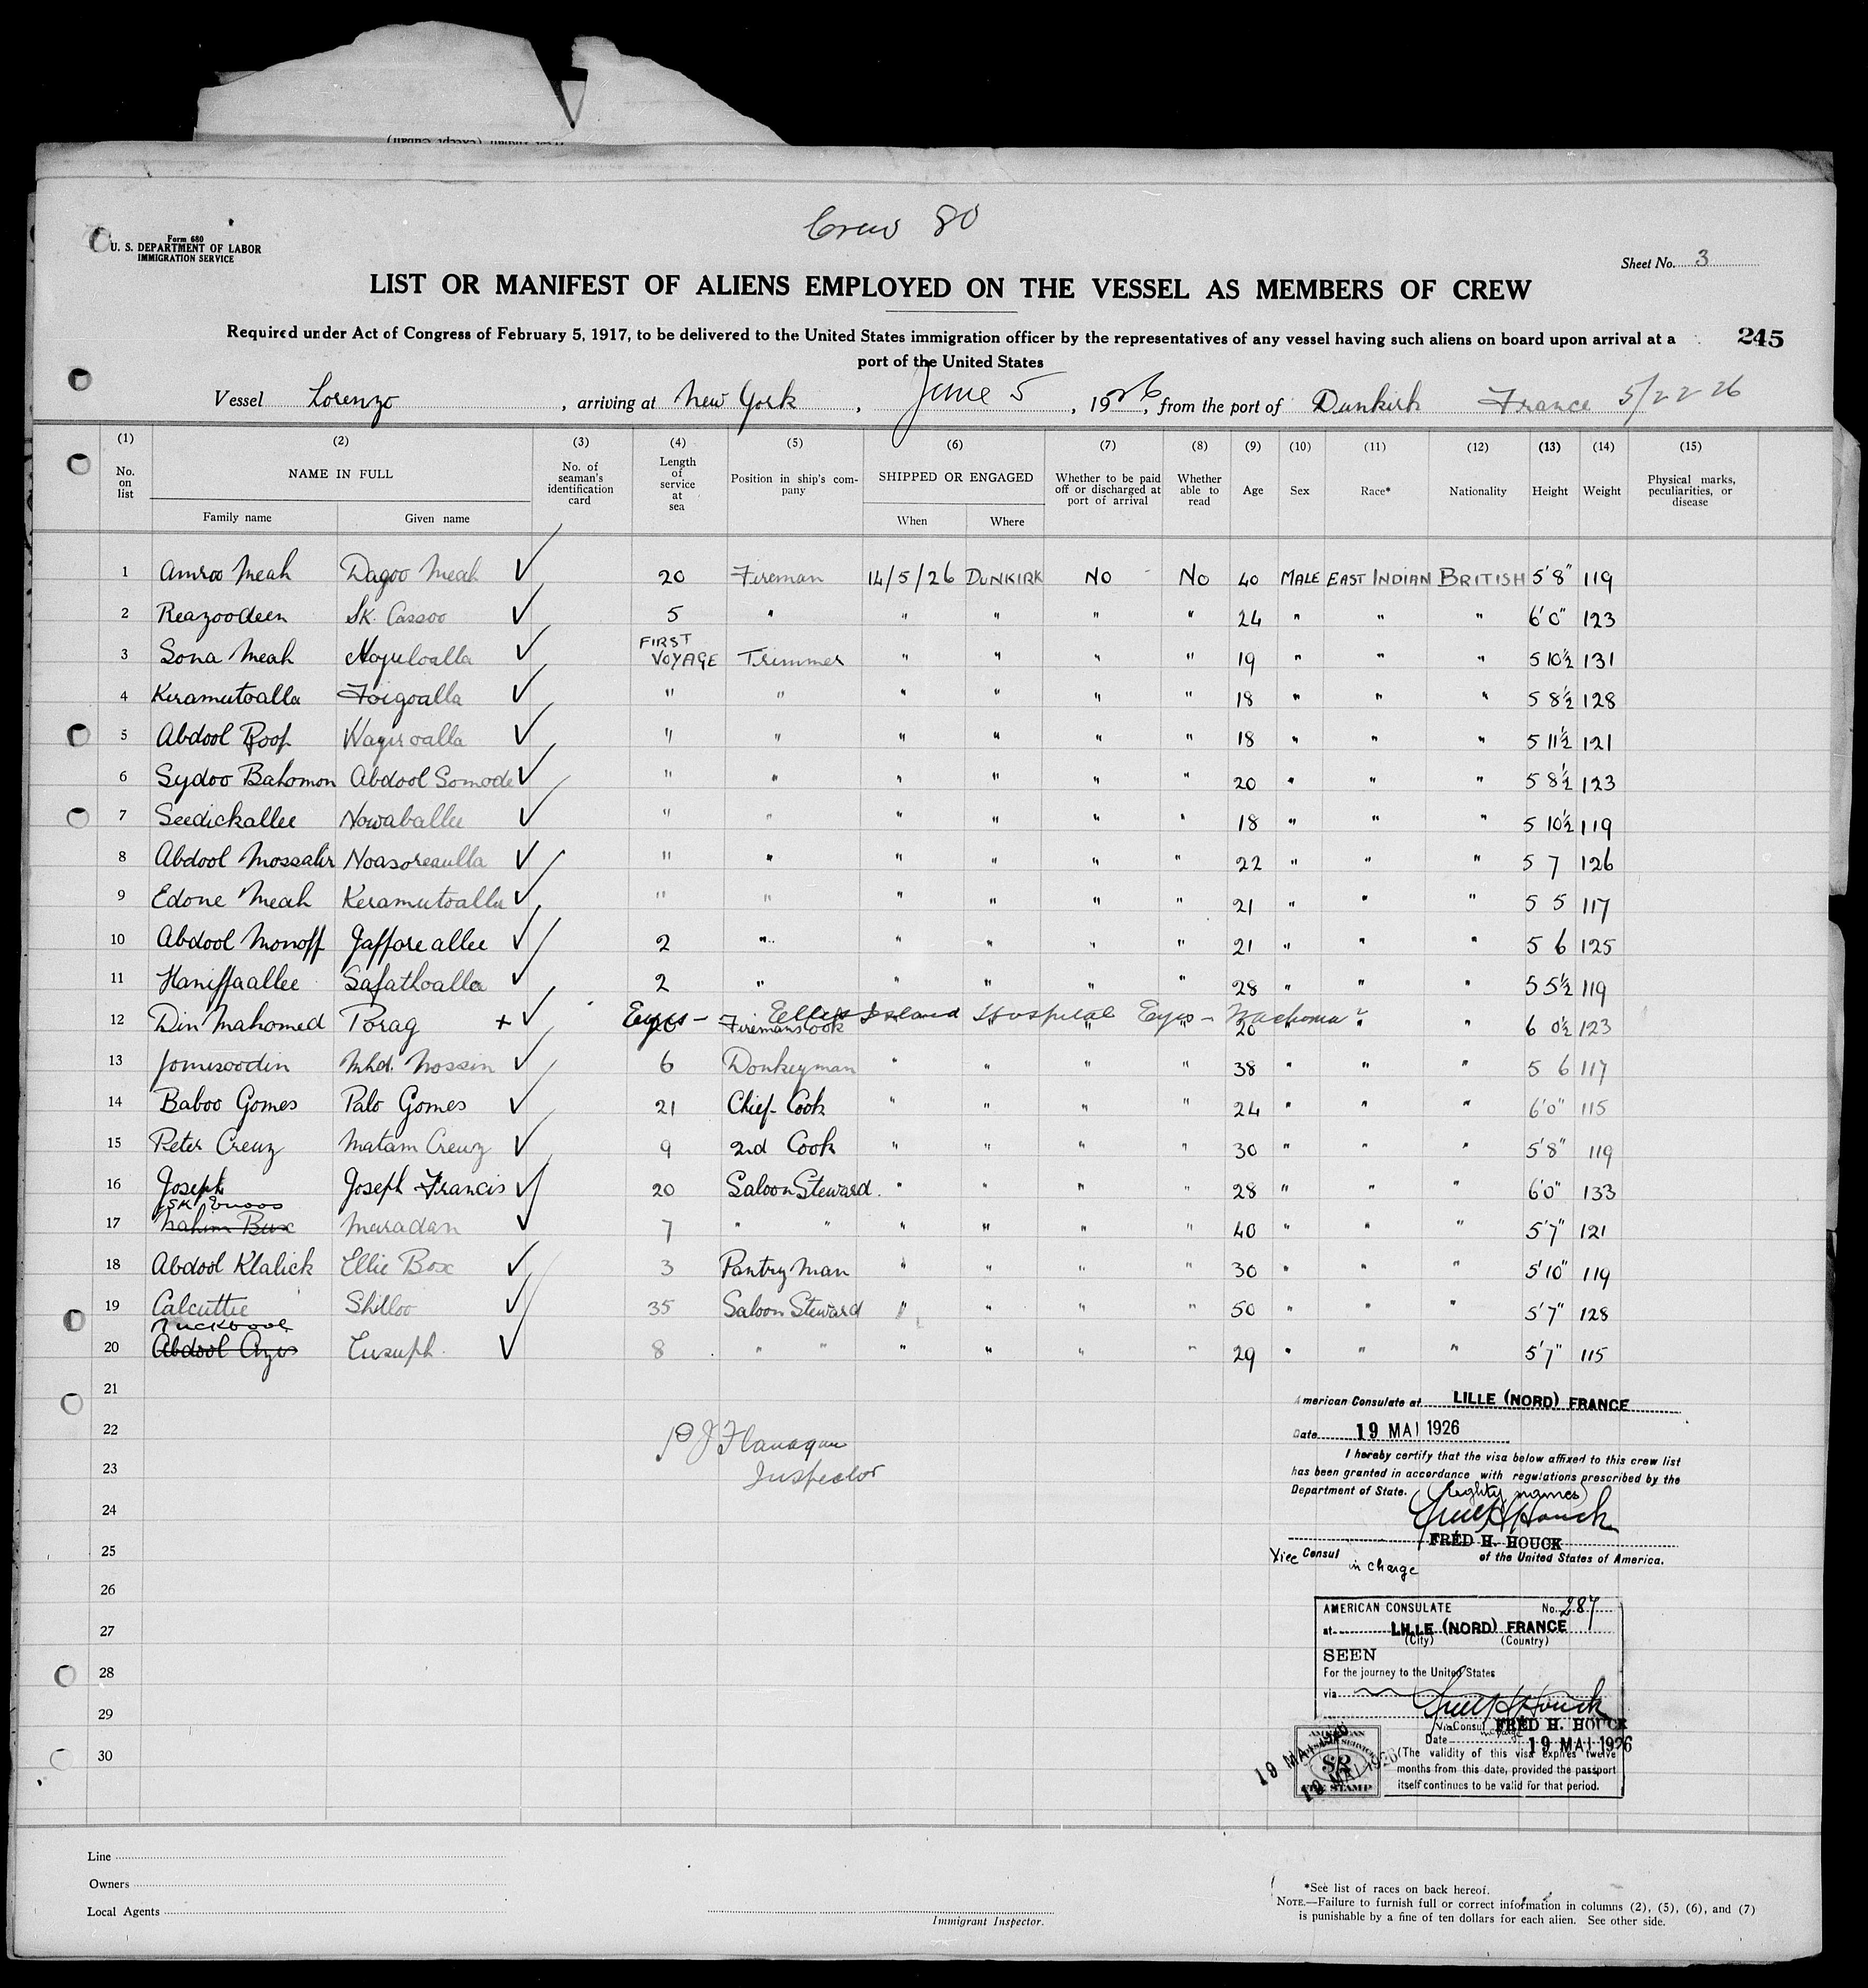 (except Cuban)
Crew 80
Form 680
U. S. DEPARTMENT OF LABOR
IMMIGRATION SERVICE
Sheet No. 3
LIST OR MANIFEST OF ALIENS EMPLOYED ON THE VESSEL AS MEMBERS OF CREW
Required under Act of Congress of February 5, 1917, to be delivered to the United States immigration officer by the representatives of any vessel having such aliens on board upon arrival at a
port of the United States
245
Vessel Lorenzo, arriving at New York, June 5, 1926, from the port of Dunkirk France 5/22 26
(1) (2) (3) (4) (5) (6) (7) (8) (9) (10) (11) (12) (13) (14) (15)
No. on list NAME IN FULL Family name Given name No. of seaman's identification card Length of service at sea Position in ship's company SHIPPED OR ENGAGED When Where Whether to be paid off or discharged at port of arrival Whether able to read Age Sex Race* Nationality Height Weight Physical marks, peculiarities, or disease
1 Amroo Meah Dagoo Meah ✓ 20 Fireman 14/5/26 DUNKIRK No No 40 MALE EAST INDIAN BRITISH 5'8" 119
2 Reazoodeen Sk. Cassoo ✓ 5 " " " " " 24 " " " 6'0" 123
3 Sona Meah ✓ FIRST VOYAGE Trimmer " " " " 19 " " " 5 10½ 131
4 Keramutoalla Foigoalla ✓ " " " " " " 18 " " " 5 8½ 128
5 Abdool Roof Wagiroalla ✓ " " " " " " 18 " " " 5 11½ 121
6 Sydoo Bahomon Abdool Somode ✓ " " " " " " 20 " " " 5 8½ 123
7 Seedickallee Nowaballee ✓ " " " " " " 18 " " " 5 10½ 119
8 Abdool Mossabir Noasoreaulla ✓ " " " " " " 22 " " " 5 7 126
9 Edone Meah Keramutoalla ✓ " " " " " " 21 " " " 5 5 117
10 Abdool Monoff Jafforeallee ✓ 2 " " " " " 21 " " " 5 6 125
11 Haniffaallee Safathoalla ✓ 2 " " " " " 28 " " " 5 5½ 119
Eyes - Ellis Island Hospital Eyes - Trachoma?
12 Din Mahomed Torag + ✓ 20 Firemans Cook " " " 26 " " " 6 0½ 123
13 Jomisoodin Mhd. Hossin ✓ 6 Donkeyman " " " " 38 " " " 5 6 117
14 Baboo Gomes Palo Gomes ✓ 21 Chief Cook " " " " 24 " " " 6'0" 115
15 Peter Creuz Matam Creuz ✓ 9 2nd Cook " " " " 30 " " " 5'8" 119
16 Joseph Joseph Francis ✓ 20 Saloon Steward " " " " 28 " " " 6'0" 133
SK
17 Rahim Bux Maradan ✓ 7 " " " " " " 40 " " " 5'7" 121
18 Abdool Klalick Ellie Box ✓ 3 Pantry Man " " " " 30 " " " 5'10" 119
19 Calcuttie Shilloo ✓ 35 Saloon Steward " " " " 50 " " " 5'7" 128
Muckbool
20 Abdool Azis Eusuph ✓ 8 " " " " " " 29 " " " 5'7" 115
21
22
23
24
25
26
27
28
29
30
P J Flanagan
Inspector
American Consulate at LILLE (NORD) FRANCE
Date 19 MAI 1926
I hereby certify that the visa below affixed to this crew list
has been granted in accordance with regulations prescribed by the
Department of State. (Eighty names)
Fred H Houck
FRED H. HOUCK
Vice Consul in charge of the United States of America.
AMERICAN CONSULATE No. 287
at LILLE (NORD) FRANCE
(City) (Country)
SEEN
For the journey to the United States
via Fred H Houck
Vice Consul in charge FRED H. HOUCK
Date 19 MAI 1926
(The validity of this visa expires twelve
months from this date, provided the passport
itself continues to be valid for that period.
AMERICAN
$2
FEE STAMP
19 MAI 1926
19 MAI 1926
Line
Owners
Local Agents
Immigrant Inspector.
*See list of races on back hereof.
NOTE.—Failure to furnish full or correct information in columns (2), (5), (6), and (7)
is punishable by a fine of ten dollars for each alien. See other side.